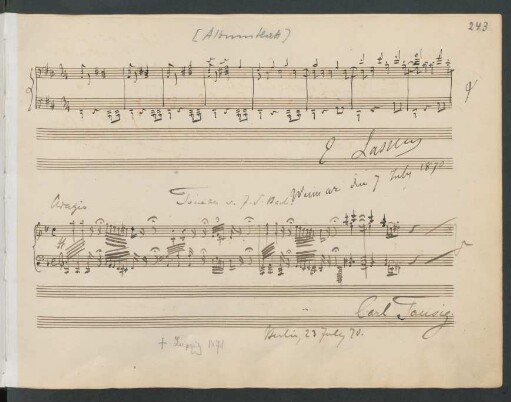 [Albumblatt]
243
E Lassen
Weimar den 7 July 1870
Adagio
Toccata v. J. S. Bach
Carl Tausig
Berlin, 23 July 70.
† Leipzig 1871